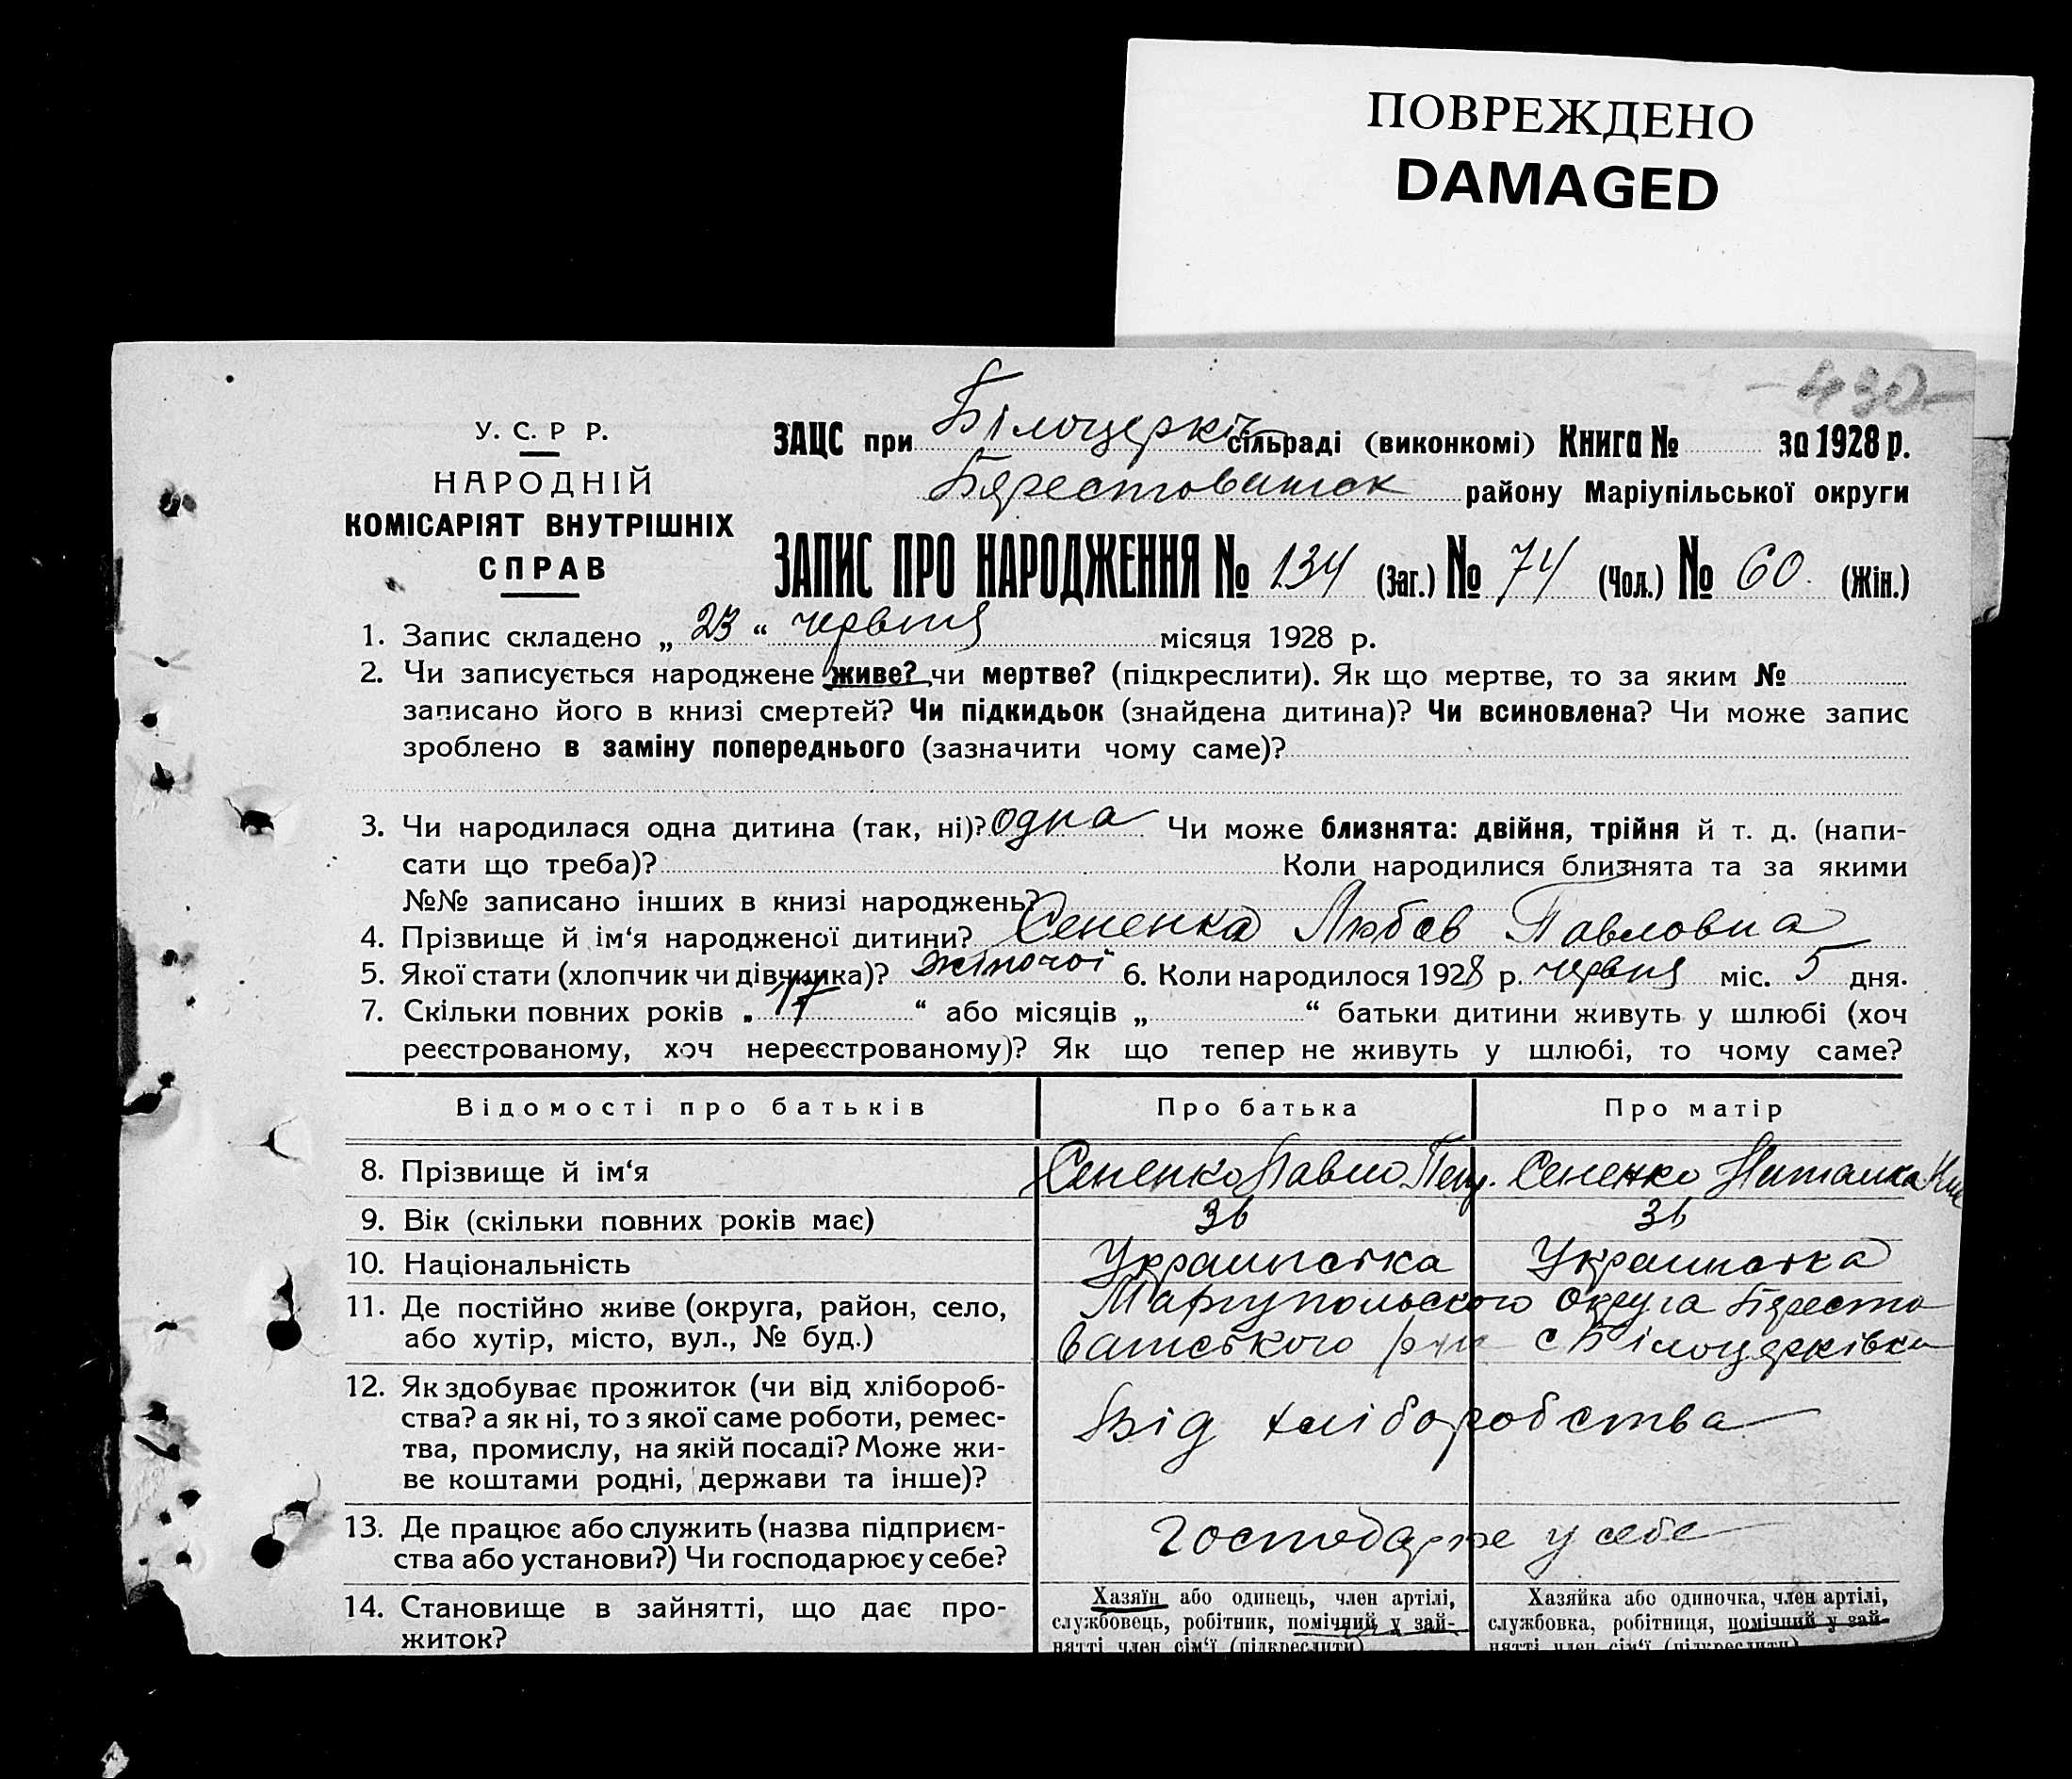 ПОВРЕЖДЕНО
DAMAGED
-430-
У. С. Р Р.
НАРОДНІЙ
КОМІСАРІЯТ ВНУТРІШНІХ
СПРАВ
ЗАЦС при Білоцерків сільраді (виконкомі) Книга № за 1928 р.
Берестоватск району Маріупільської округи
ЗАПИС ПРО НАРОДЖЕННЯ № 134 (Заг.) № 74 (Чол.) № 60. (Жін.)
1. Запис складено „ 23 “ червня місяця 1928 р.
2. Чи записується народжене живе? чи мертве? (підкреслити). Як що мертве, то за яким №
записано його в книзі смертей? Чи підкидьок (знайдена дитина)? Чи всиновлена? Чи може запис
зроблено в заміну попереднього (зазначити чому саме)?
3. Чи народилася одна дитина (так, ні)? одна Чи може близнята: двійня, трійня й т. д. (напи-
сати що треба)? Коли народилися близнята та за якими
№№ записано інших в книзі народжень?
4. Прізвище й ім‘я народженої дитини? Сененка Любов Павловна
5. Якої стати (хлопчик чи дівчинка)? жіночої 6. Коли народилося 1928 р. червня міс. 5 дня.
7. Скільки повних років „ 17 “ або місяців „ “ батьки дитини живуть у шлюбі (хоч
реєстрованому, хоч нереєстрованому)? Як що тепер не живуть у шлюбі, то чому саме?
Відомості про батьків Про батька Про матір
8. Прізвище й ім‘я Сененко Павло Петр. Сененко Наталка
9. Вік (скільки повних років має) 36 36
10. Національність Украінська Украінська
11. Де постійно живе (округа, район, село, Маріупольского округа Бересто
або хутір, місто, вул., № буд.) ватського р-ну с Білоцерківка
12. Як здобуває прожиток (чи від хлібороб-
ства? а як ні, то з якої саме роботи, ремес- Від хліборобства
тва, промислу, на якій посаді? Може жи-
ве коштами родні, держави та інше)?
13. Де працює або служить (назва підприєм- Господарює у себе
ства або установи?) Чи господарює у себе?
14. Становище в зайнятті, що дає про-
житок?
Хазяїн або одинець, член артілі,
службовець, робітник, помічний у зай-
нятті член сім‘ї (підкреслити)
Хазяйка або одиночка, член артілі,
службовка, робітниця, помічний у зай-
нятті член сім‘ї (підкреслити)